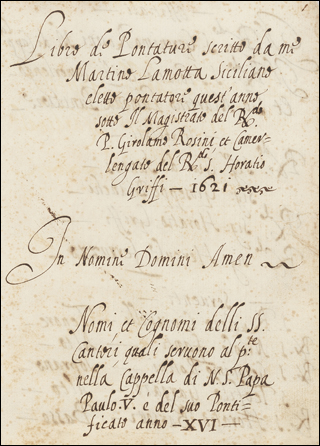 Libro de Pontature scritto da me
Martino Lamotta Siciliano
eletto pontatore quest'anno
sotto Il Magistrato del R.do
P. Girolamo Rosini et Camer-
lengato del R.do S. Horatio
Griffi — 1621
In Nomine Domini Amen
Nomi et Cognomi delli SS.
Cantori quali seruono al p.nte
nella Cappella di N. S. Papa
Paulo. V. e del suo Ponti-
ficato anno — XVI —